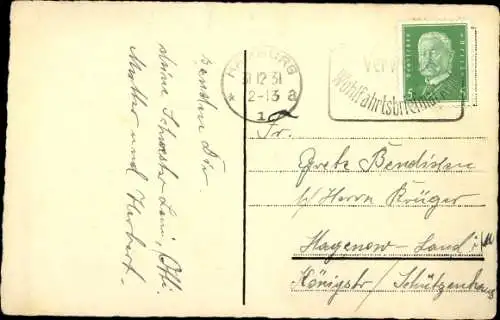 senden Dir
deine Schwester Leni, Otti
Mutter und Herbert.
HAMBURG
31.12.31
2-13 a
1
Verw
Wohlfahrtsbriefmarken
Deutsches Reich
5 5
Fr.
Grete Bendixen
b/ Herrn Krüger
Hagenow-Land i/M
Königstr/ Schützenhaus